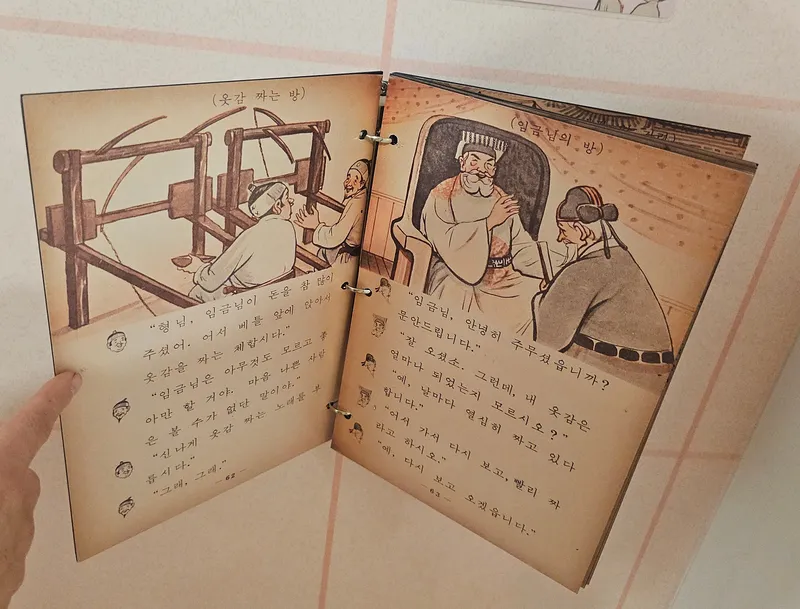 (옷감 짜는 방)
"형님, 임금님이 돈을 참 많이
주셨어. 어서 베틀 앞에 앉아서
옷감을 짜는 체합시다."
"임금님은 아무것도 모르고 좋
아만 할 거야. 마음 나쁜 사람
은 볼 수가 없단 말이야."
"신나게 옷감 짜는 노래를 부
릅시다."
"그래, 그래."
- 62 -
(임금님의 방)
"임금님, 안녕히 주무셨읍니까?
문안드립니다."
"잘 오셨소. 그런데, 내 옷감은
얼마나 되었는지 모르시오?"
"예, 날마다 열심히 짜고 있다
합니다."
"어서 가서 다시 보고, 빨리 짜
라고 하시오."
"예, 다시 보고 오겠읍니다."
- 63 -